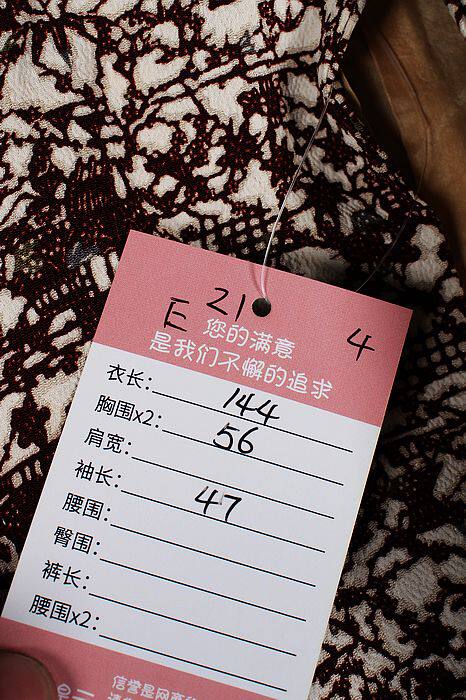 E 21 4
您的满意
是我们不懈的追求
衣长: 144
胸围x2: 56
肩宽:
袖长: 47
腰围:
臀围:
裤长:
腰围x2:
信誉是网